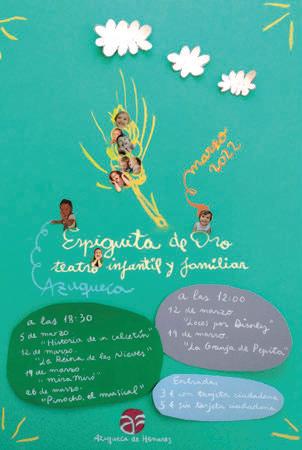 marzo 2022
Espiguita de Oro
teatro infantil y familiar
Azuqueca
a las 18:30
5 de marzo.
"Historia de un calcetín"
12 de marzo.
"La Reina de las Nieves"
19 de marzo.
"Mira Miró"
26 de marzo.
"Pinocho, el musical"
a las 12:00
12 de marzo.
"Loc@s por Disney"
19 de marzo.
"La Granja de Pepita"
Entradas
3 € con tarjeta ciudadana
5 € sin tarjeta ciudadana
Azuqueca de Henares